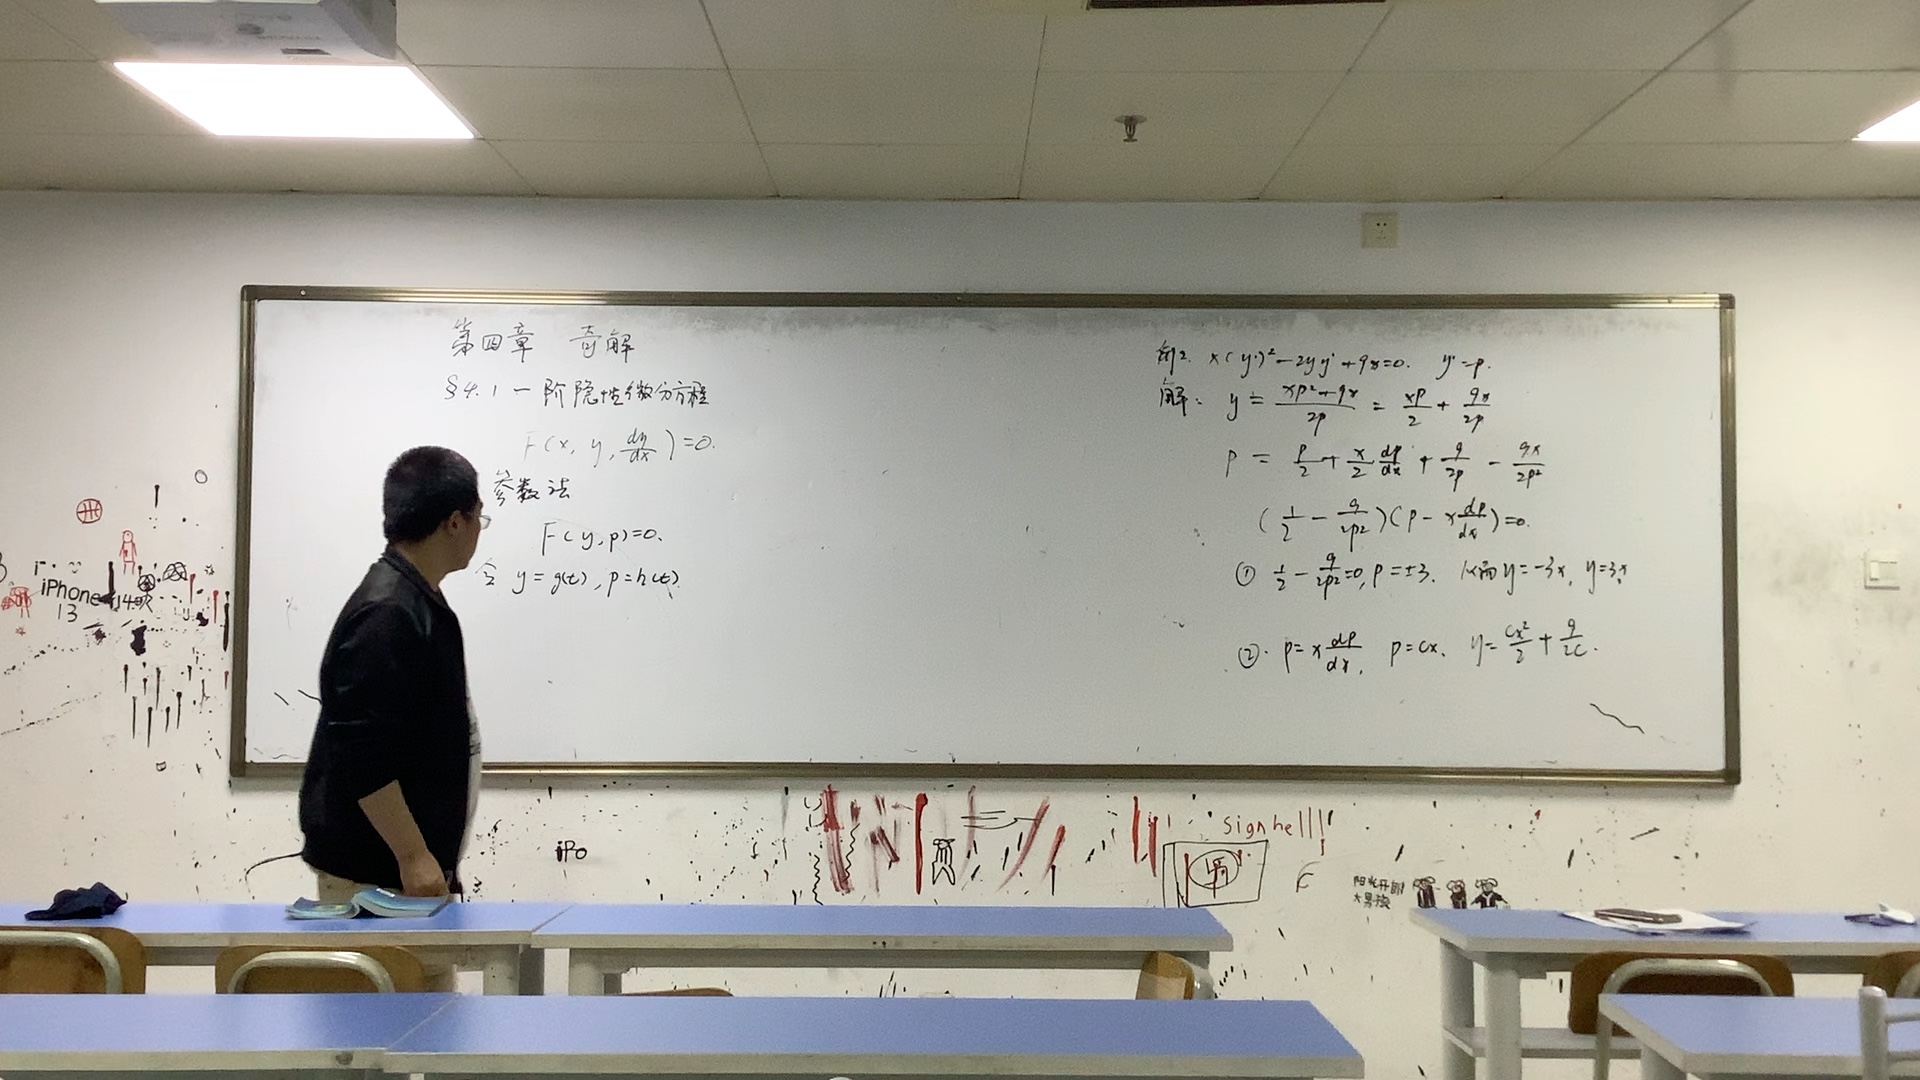 第四章 奇解
§4.1 一阶隐性微分方程
F(x, y, dy/dx)=0.
参数法
F(y,p)=0.
令 y=g(t), p=h(t).
例2. x(y')²-2yy'+9x=0. y'=p.
解: y = (xp²+9x)/2p = xp/2 + 9x/2p
p = p/2 + x/2 dp/dx + 9/2p - 9x/2p²
(1/2 - 9/2p²)(p - x dp/dx)=0.
① 1/2 - 9/2p²=0, p=±3. 从而 y=-3x, y=3x
②. p=x dp/dx, p=cx. y= cx²/2 + 9/2c.
iPhone 14
13
iPo
signhell!!
阳光开朗
大男孩